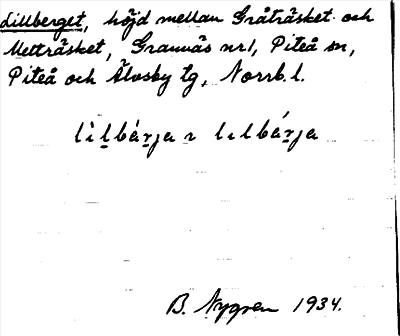 Lillberget, höjd mellan Gråträsket och
Metträsket, Grannäs nr1, Piteå sn,
Piteå och Älvsby tg, Norrb. l.
lìlbárja ɿ lılbárja
B. Nygren 1934.